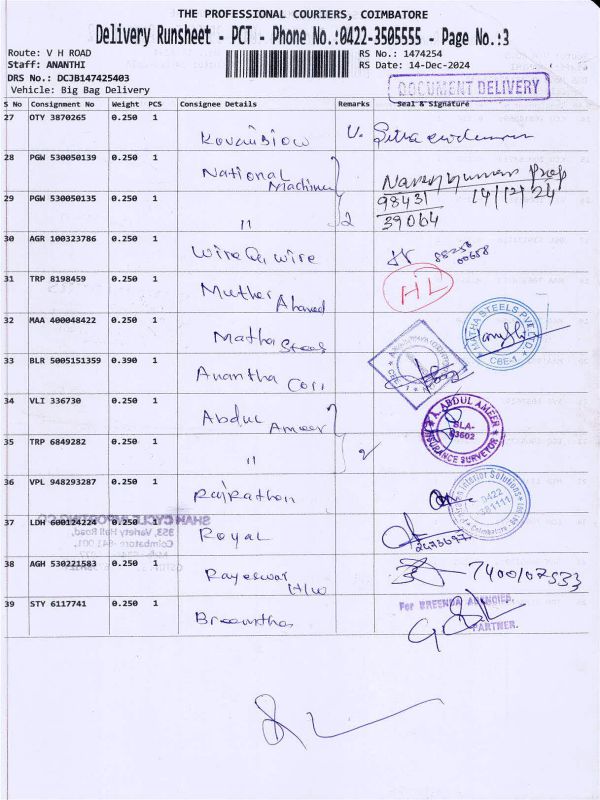 THE PROFESSIONAL COURIERS, COIMBATORE
Delivery Runsheet - PCT - Phone No.:0422-3505555 - Page No.:3
Route: V H ROAD RS No.: 1474254
Staff: ANANTHI RS Date: 14-Dec-2024
DRS No.: DCJB147425403
Vehicle: Big Bag Delivery
DOCUMENT DELIVERY
S No Consignment No Weight PCS Consignee Details Remarks Seal & Signature
27 OTY 3870265 0.250 1
28 PGW 530050139 0.250 1
National Machine
98431
14/12/24
29 PGW 530050135 0.250 1
" 2 39064
30 AGR 100323786 0.250 1
wire wire
31 TRP 8198459 0.250 1
Muther Ahamed
32 MAA 400048422 0.250 1
Matha Steels
MATHA STEELS PVT LTD
CBE-1
33 BLR 5005151359 0.390 1
Anantha
34 VLI 336730 0.250 1
Abdul Ameer
A. ABDUL AMEER
SLA-
INSURANCE SURVEYOR
35 TRP 6849282 0.250 1
" 2
36 VPL 948293287 0.250 1
Rajrathan
Interior Solutions
0422
37 LDH 600124224 0.250 1
Royal
SHAH CYCLE
353, Variety Hall Road,
Coimbatore - 641 001.
38 AGH 530221583 0.250 1
Rajeswari H/W
39 STY 6117741 0.250 1
For BREENDA AGENCIES,
PARTNER.